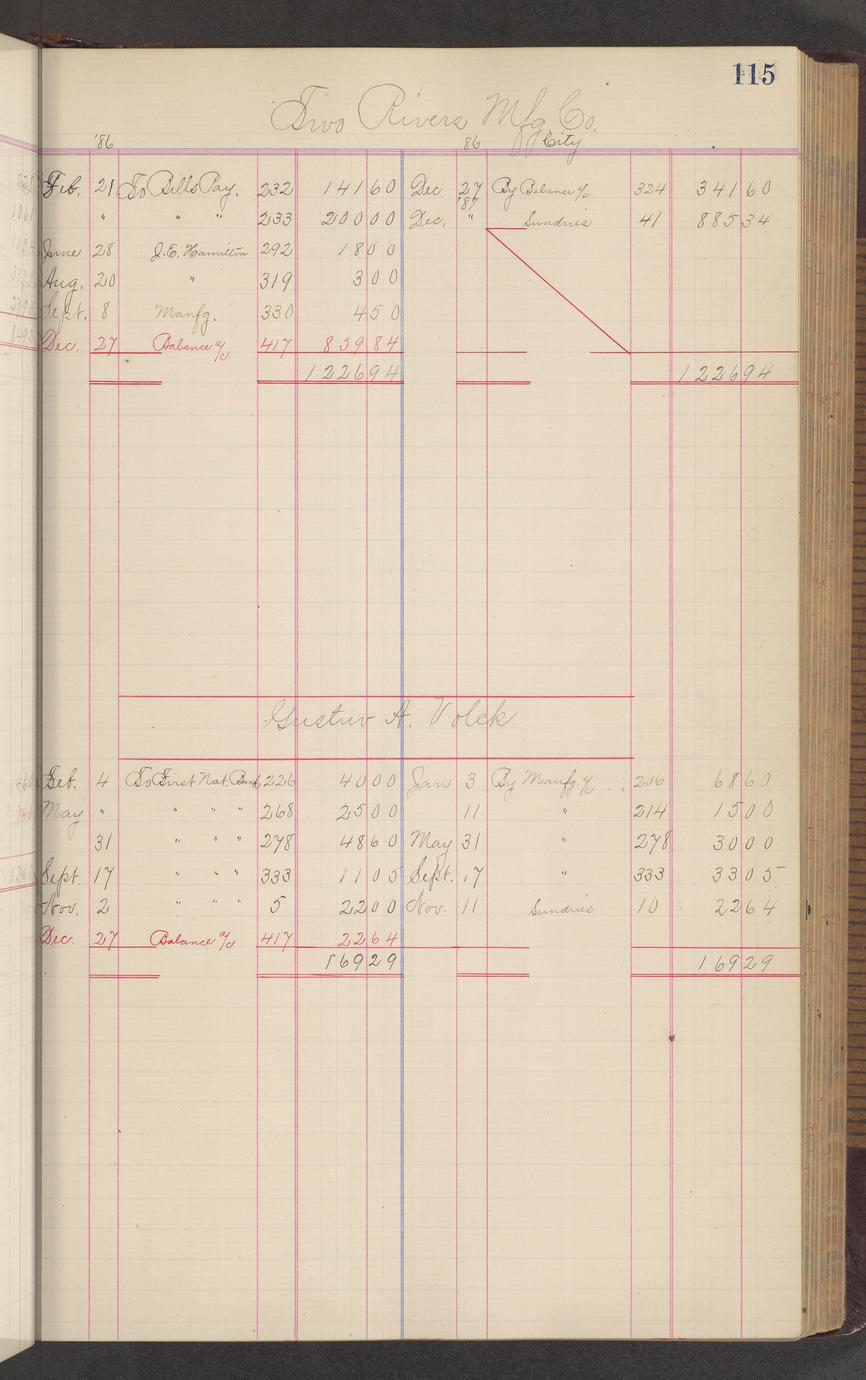 115
Two Rivers Mfg Co.
'86 86 City.
Feb. 21 To Bills Pay. 232 141 60 Dec. 27 By Balance a/c 324 341 60
'87
" " " 233 200 00 Dec. " Sundries 41 885 34
June 28 J.E. Hamilton 292 18 00
Aug. 20 " 319 3 00
Sept. 8 Manfg. 330 4 50
Dec. 27 Balance a/c 417 859 84
1226 94 1226 94
Gustav A. Volck
Feb. 4 To First Nat. Bank 226 40 00 Jan 3 By Manfg. a/c 206 68 60
May " " " " 268 25 00 11 " 214 15 00
31 " " " 278 48 60 May 31 " 278 30 00
Sept. 17 " " " 333 11 05 Sept. 17 " 333 33 05
Nov. 2 " " " 5 22 00 Nov. 11 Sundries 10 22 64
Dec. 27 Balance a/c 417 22 64
169 29 169 29